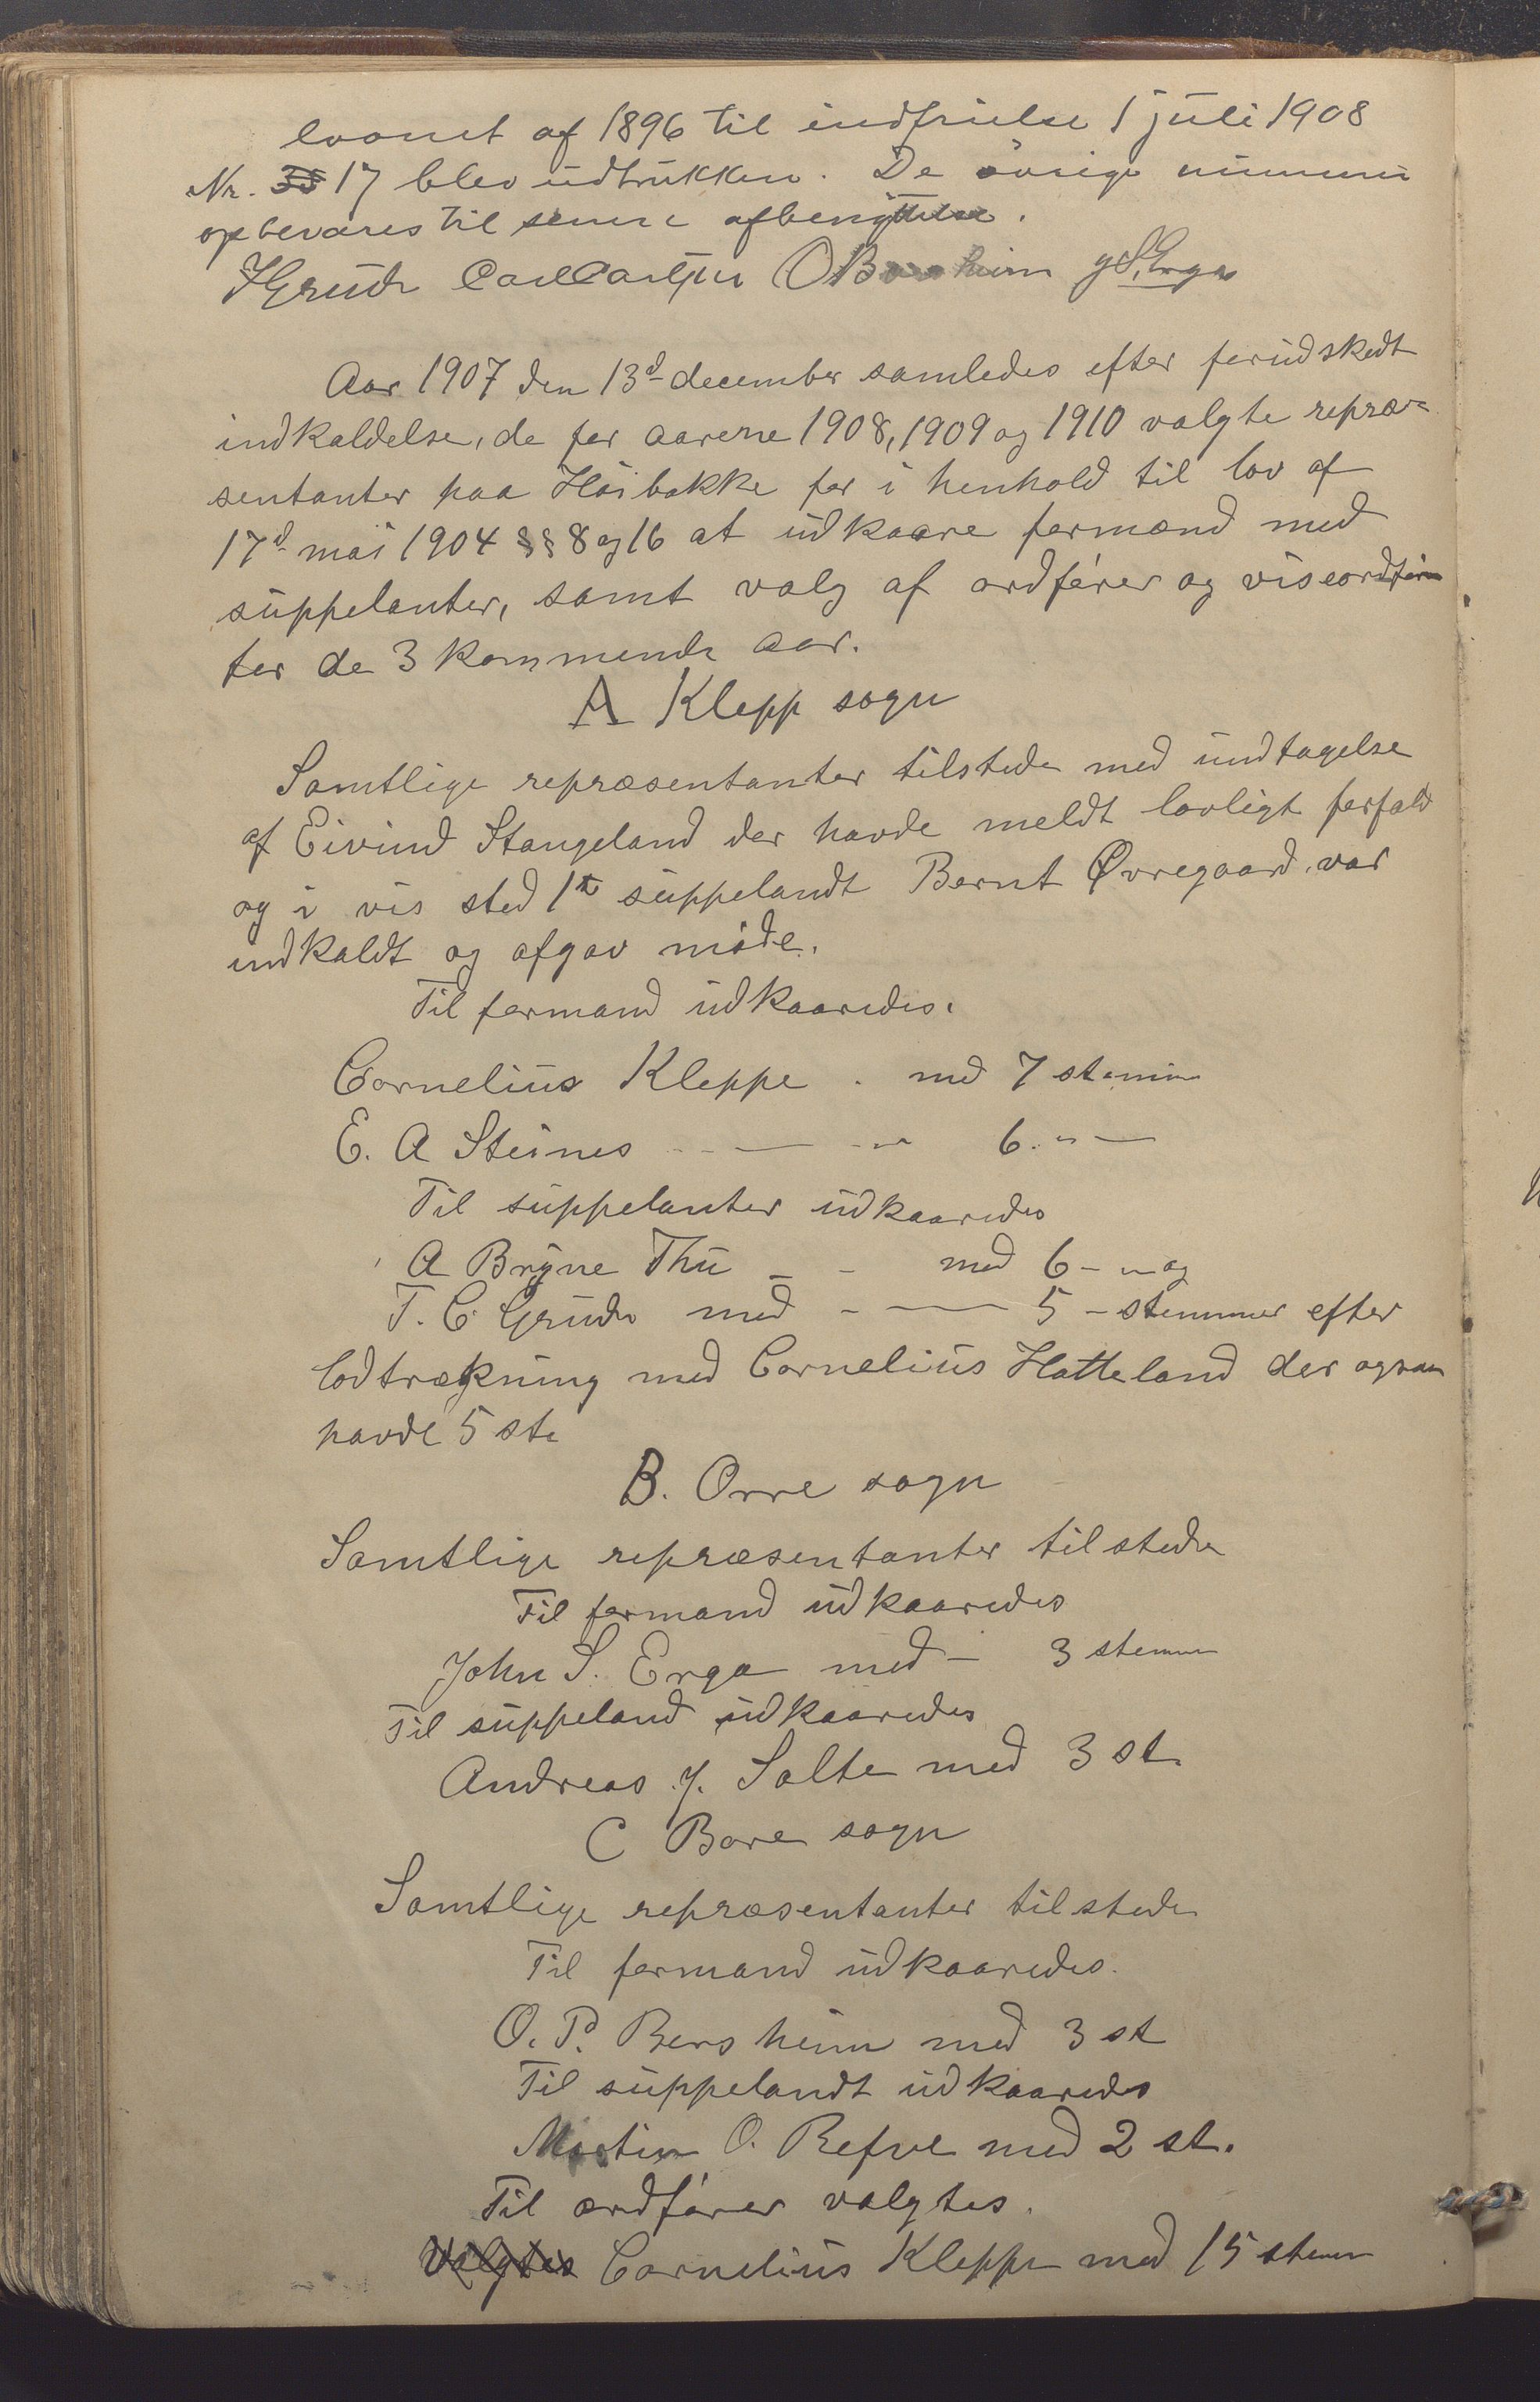 laanet af 1896 til indfrielse 1 juli 1908
Nr. 17 blev udtrukken. De övrige nummere
opbevares til senere afbenyttelse.
TGrude Carl OBersheim JSErga
Aar 1907 den 13d december samledes efter forudskedt
indkaldelse, de for aarene 1908, 1909 og 1910 valgte repræ-
sentanter paa Höibakke for i henhold til lov af
17d mai 1904 §§ 8 og 16 at udkaare formænd med
suppelanter, samt valg af ordförer og viseordförer
for de 3 kommende aar.
A Klepp sogn
Samtlige repræsentanter tilstede med undtagelse
af Eivind Stangeland der havde meldt lovligt forfald
og i vis sted 1te suppelandt Bernt Øvregaard var
indkaldt og afgav möde.
Til formand udkaaredes.
Cornelius Kleppe . med 7 stemmer
E. A Steines - — - " 6. " —
Til suppelanter udkaaredes
A Bryne Thu - - med 6 - " og
T. C Grude med - — 5 - stemmer efter
lodtrækning med Cornelius Hatteland der ogsaa
havde 5 st.
B. Orre sogn
Samtlige repræsentanter tilstede
Til formand udkaaredes
John S. Erga med - 3 stemmer
Til suppeland udkaaredes
Andreas J. Salte med 3 st.
C Bore sogn
Samtlige repræsentanter tilstede
Til formand udkaaredes.
O. P. Bersheim med 3 st
Til suppelandt udkaaredes
Martin O. Refve med 2 st.
Til ordförer valgtes.
Valgtes Cornelius Kleppe med 15 stemmer